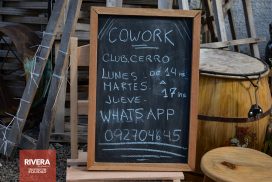 COWORK
CLUB.CERRO
LUNES - DE 14 HS
MARTES A 17 HS
JUEVE -
WHATSAPP
092704645
RIVERA